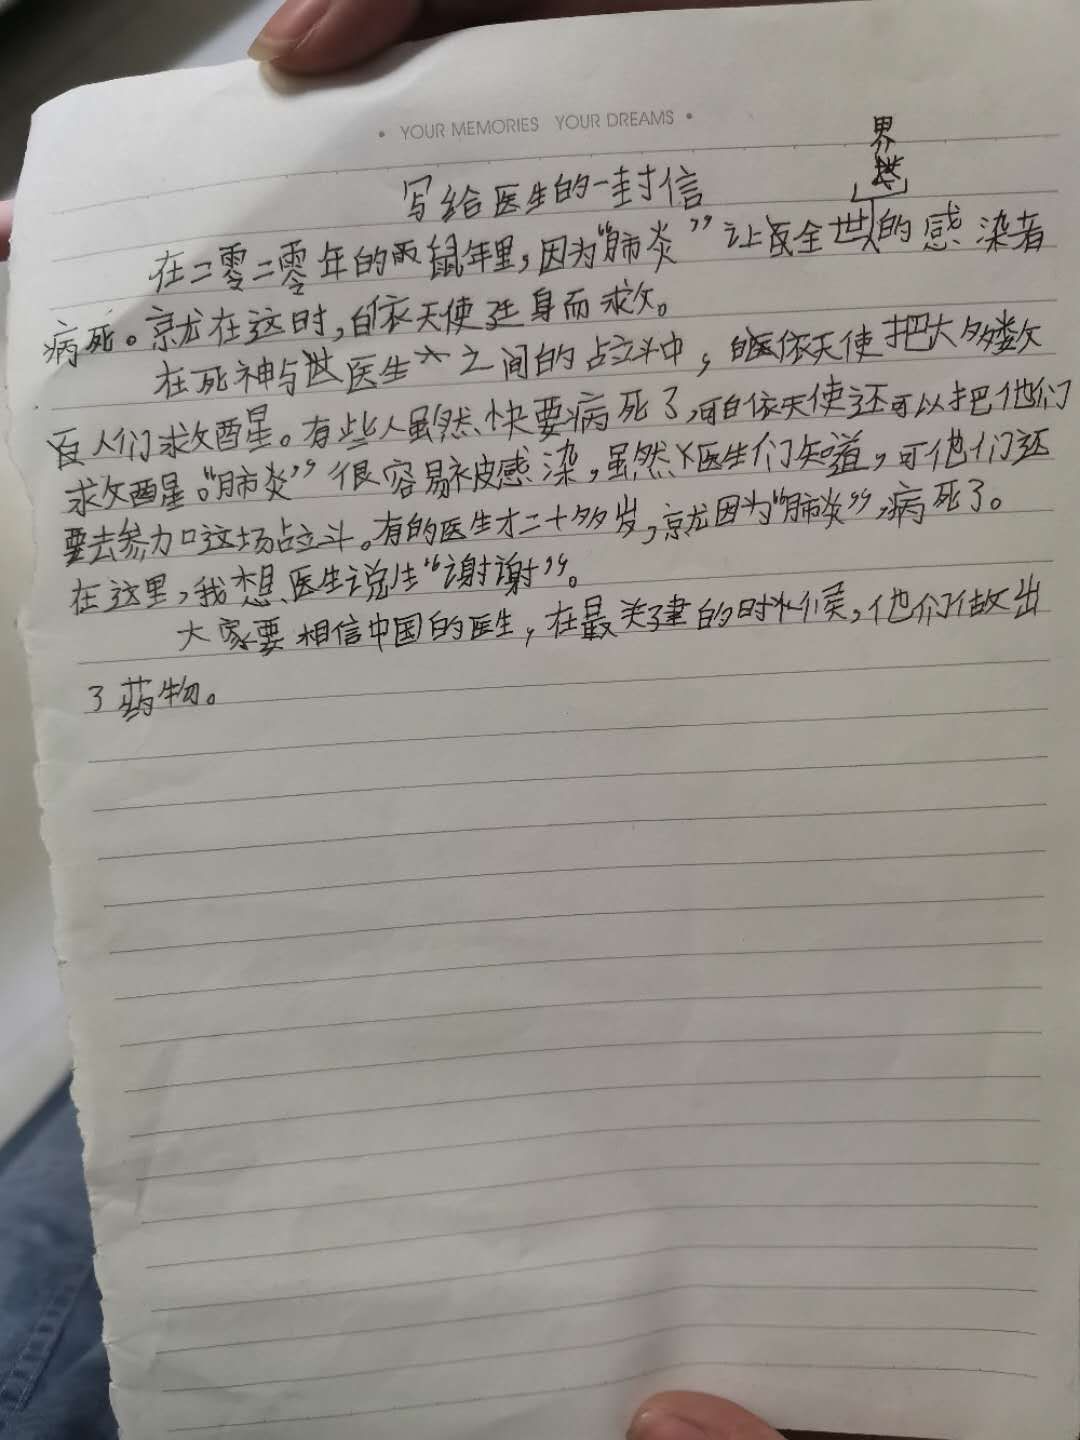 • YOUR MEMORIES YOUR DREAMS •
写给医生的一封信
界
在二零二零年的鼠年里,因为“肺炎”让全世的感染者
病死。就在这时,白衣天使廷身而求。
在死神与医生之间的战斗中,白衣天使把大多数
人们救醒。有些人虽然快要病死了,可白衣天使还可以把他们
救醒。“肺炎”很容易被感染,虽然医生们知道,可他们还
要去参加这场战斗。有的医生才二十多岁,就因为“肺炎”,病死了。
在这里,我想医生说“谢谢”。
大家要相信中国的医生,在最关建的时候,他们做出
了药物。